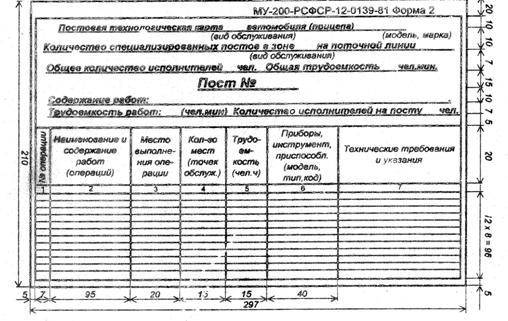 МУ-200-РСФСР-12-0139-81 Форма 2
Постовая технологическая карта автомобиля (прицепа)
(вид обслуживания) (модель, марка)
Количество специализированных постов в зоне на поточной линии
(вид обслуживания)
Общее количество исполнителей чел. Общая трудоемкость чел.мин.
Пост №
Содержание работ:
Трудоемкость работ: (чел.мин) Количество исполнителей на посту чел.
№ операции
Наименование и содержание работ (операций)
Место выполне-ния опе-рации
Кол-во мест (точек обслуж.)
Трудо-ем-кость (чел.ч)
Приборы, инструмент, приспособл. (модель, тип,код)
Технические требования и указания
1 2 3 4 5 6 7
5 7 95 20 15 15 40
297
210
20
10
10
10
7
15
10
7
5
20
12 x 8 = 96
5